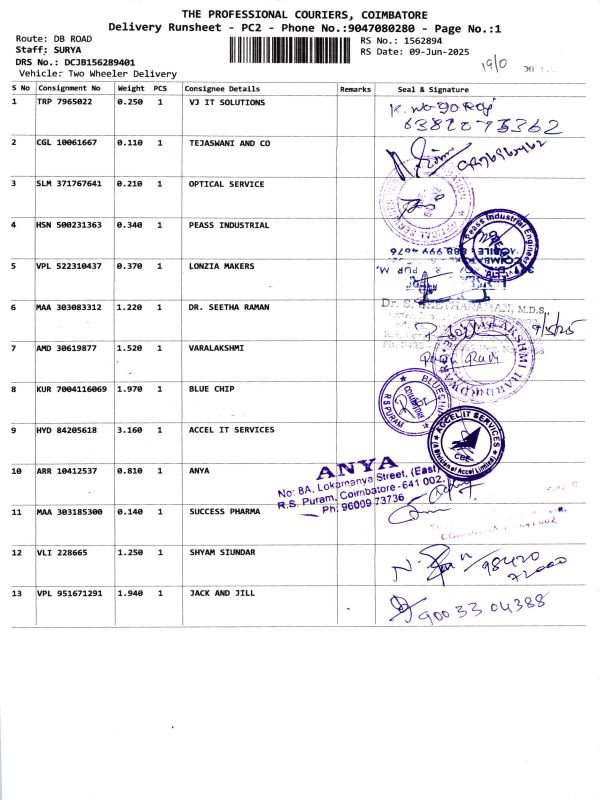 THE PROFESSIONAL COURIERS, COIMBATORE
Delivery Runsheet - PC2 - Phone No.:9047080280 - Page No.:1
Route: DB ROAD
Staff: SURYA
DRS No.: DCJB156289401
Vehicle: Two Wheeler Delivery
RS No.: 1562894
RS Date: 09-Jun-2025
19/0
S No Consignment No Weight PCS Consignee Details Remarks Seal & Signature
1 TRP 7965022 0.250 1 VJ IT SOLUTIONS
2 CGL 10061667 0.110 1 TEJASWANI AND CO
3 SLM 371767641 0.210 1 OPTICAL SERVICE
4 HSN 500231363 0.340 1 PEASS INDUSTRIAL
Peass Industrial Engineers
5 VPL 522310437 0.370 1 LONZIA MAKERS
6 MAA 303083312 1.220 1 DR. SEETHA RAMAN
M.D.S.
7 AMD 30619877 1.520 1 VARALAKSHMI
8 KUR 7004116069 1.970 1 BLUE CHIP
BLUECHIP
COIMBATORE
R S PURAM
9 HYD 84205618 3.160 1 ACCEL IT SERVICES
ACCEL IT SERVICES
(A Division of Accel Limited)
CBE
10 ARR 10412537 0.810 1 ANYA
ANYA
No: 8A, Lokamanya Street, (East)
R.S. Puram, Coimbatore - 641 002.
Ph: 96009 73736
11 MAA 303185300 0.140 1 SUCCESS PHARMA
12 VLI 228665 1.250 1 SHYAM SIUNDAR
98420
72000
13 VPL 951671291 1.940 1 JACK AND JILL
90033 04388